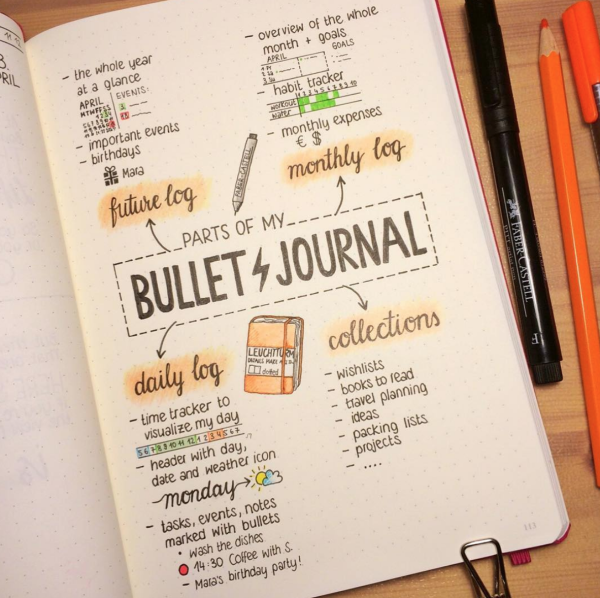 - the whole year
at a glance
APRIL
EVENTS:
- important events
- birthdays
Mara
future log
- overview of the whole
month + goals
APRIL
GOALS
habit tracker
1 2 3 4 5 6 7 8 9 10
workout
water
- monthly expenses
€ $
monthly log
FABER CASTELL
PARTS OF MY
BULLET JOURNAL
daily log
- time tracker to
visualize my day
5 6 7 8 9 10 11 12 1 2 3 4 5 6 7
- header with day,
date and weather icon
monday
- tasks, events, notes
marked with bullets
• wash the dishes
14:30 Coffee with S.
- Mara's birthday party!
LEUCHTTURM
dotted
collections
- wishlists
- books to read
- travel planning
- ideas
- packing lists
- projects
- ....
FABER-CASTELL
APRIL